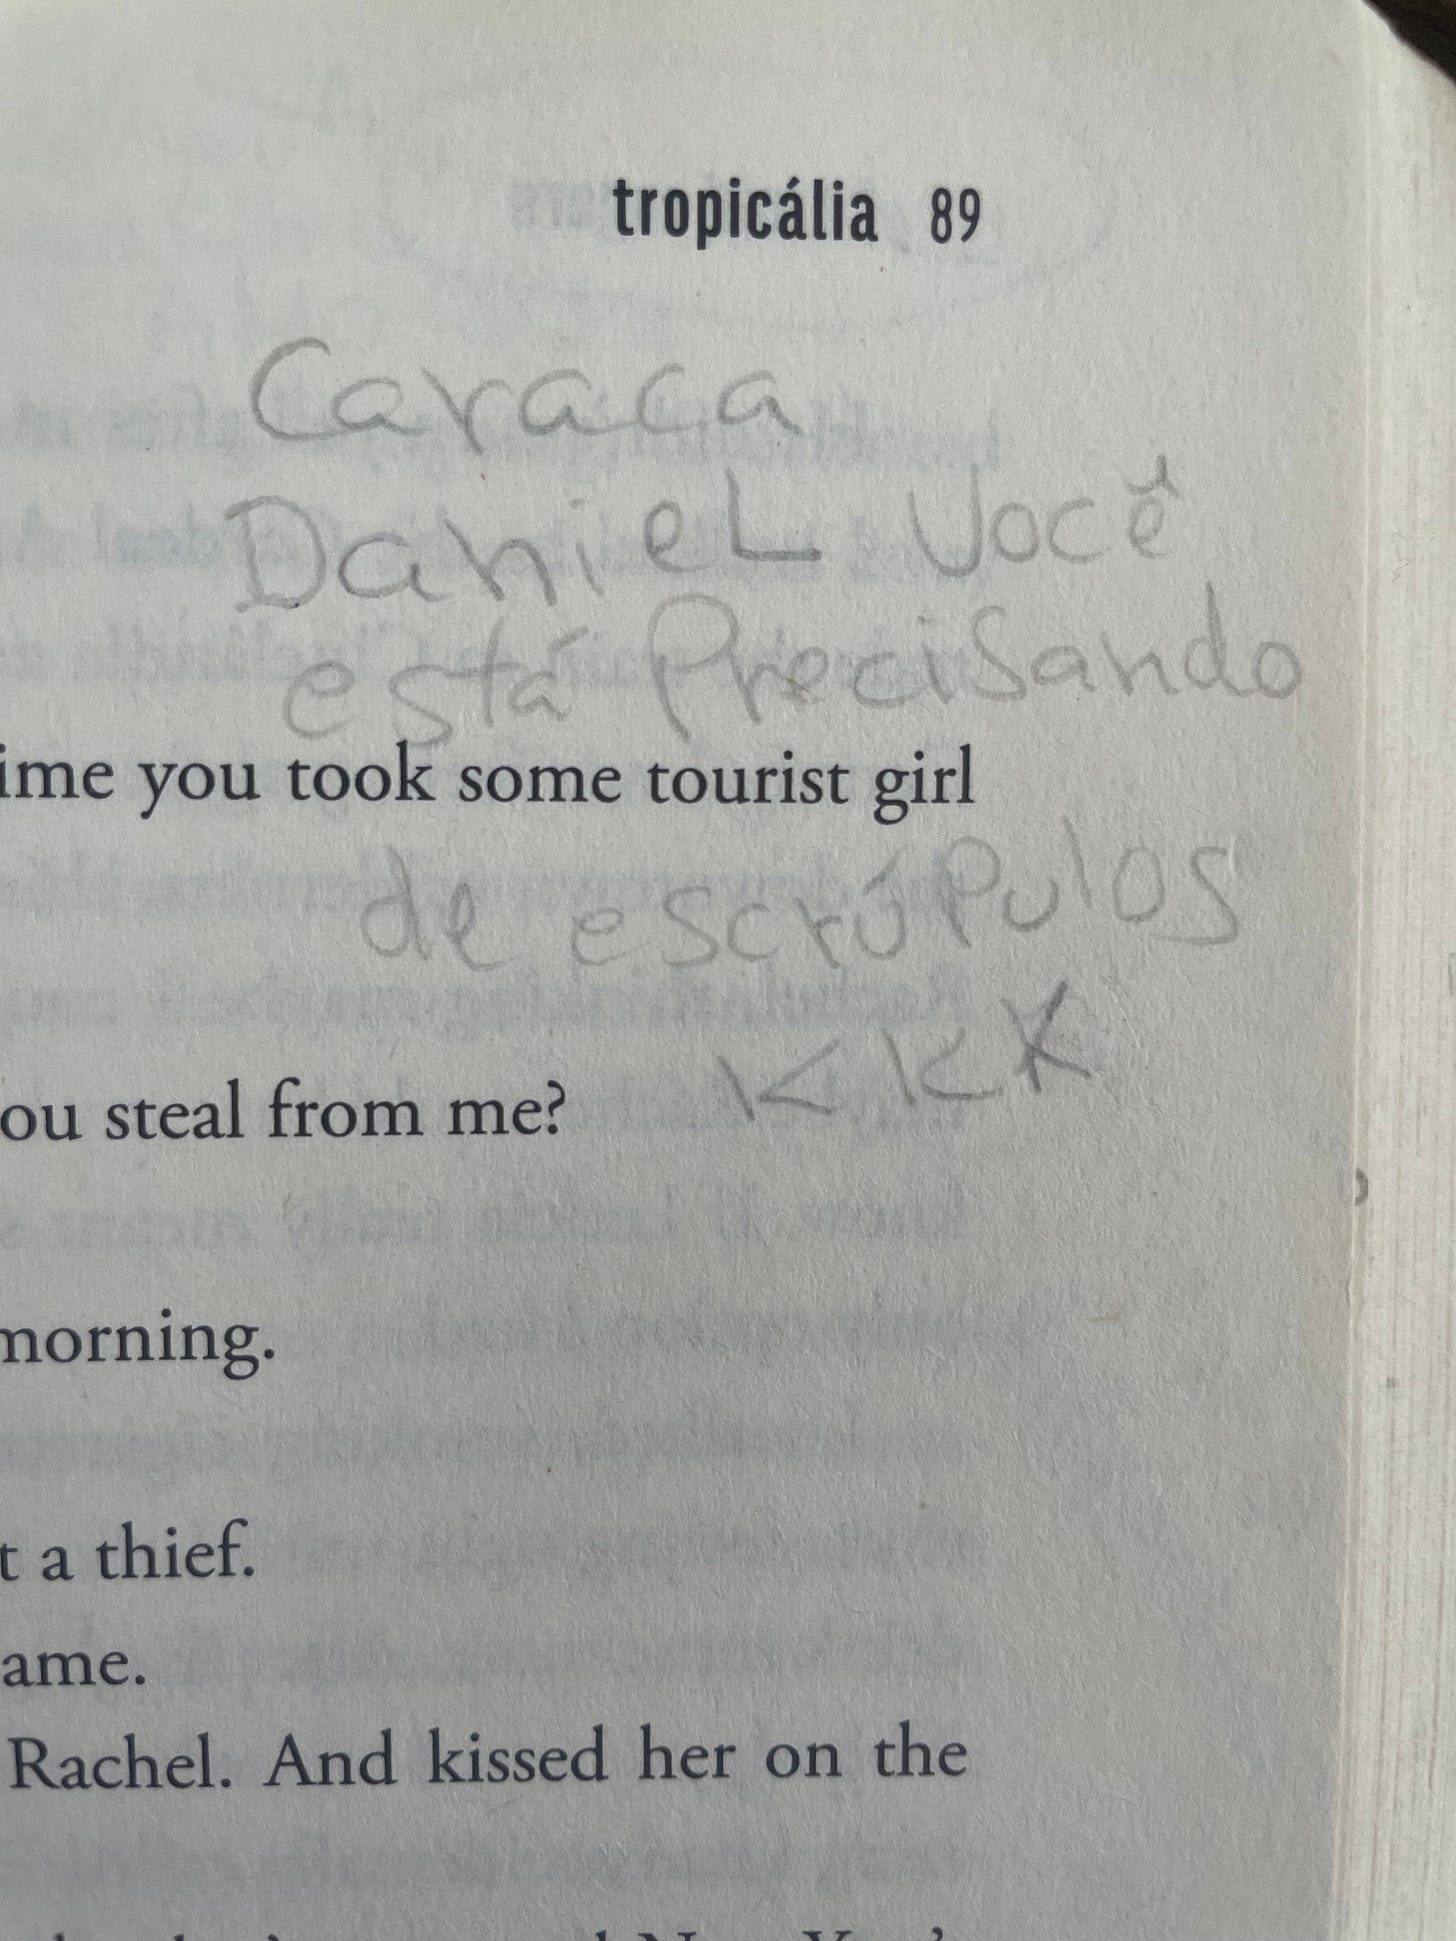 tropicália 89
Caraca
DanieL você
está Precisando
ime you took some tourist girl
de escrúPulos
KKK
ou steal from me?
morning.
t a thief.
ame.
Rachel. And kissed her on the